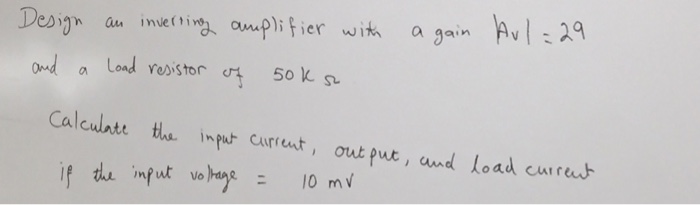 Design an inverting amplifier with a gain |Av| = 29
and a load resistor of 50 k Ω
Calculate the input current, output, and load current
if the input voltage = 10 mV